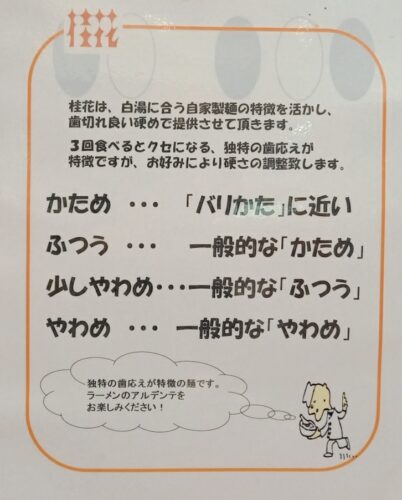 桂花
桂花は、白湯に合う自家製麺の特徴を活かし、
歯切れ良い硬めで提供させて頂きます。
３回食べるとクセになる、独特の歯応えが
特徴ですが、お好みにより硬さの調整致します。
かため ・・・ 「バリかた」に近い
ふつう ・・・ 一般的な「かため」
少しやわめ・・・一般的な「ふつう」
やわめ ・・・ 一般的な「やわめ」
独特の歯応えが特徴の麺です。
ラーメンのアルデンテを
お楽しみください！